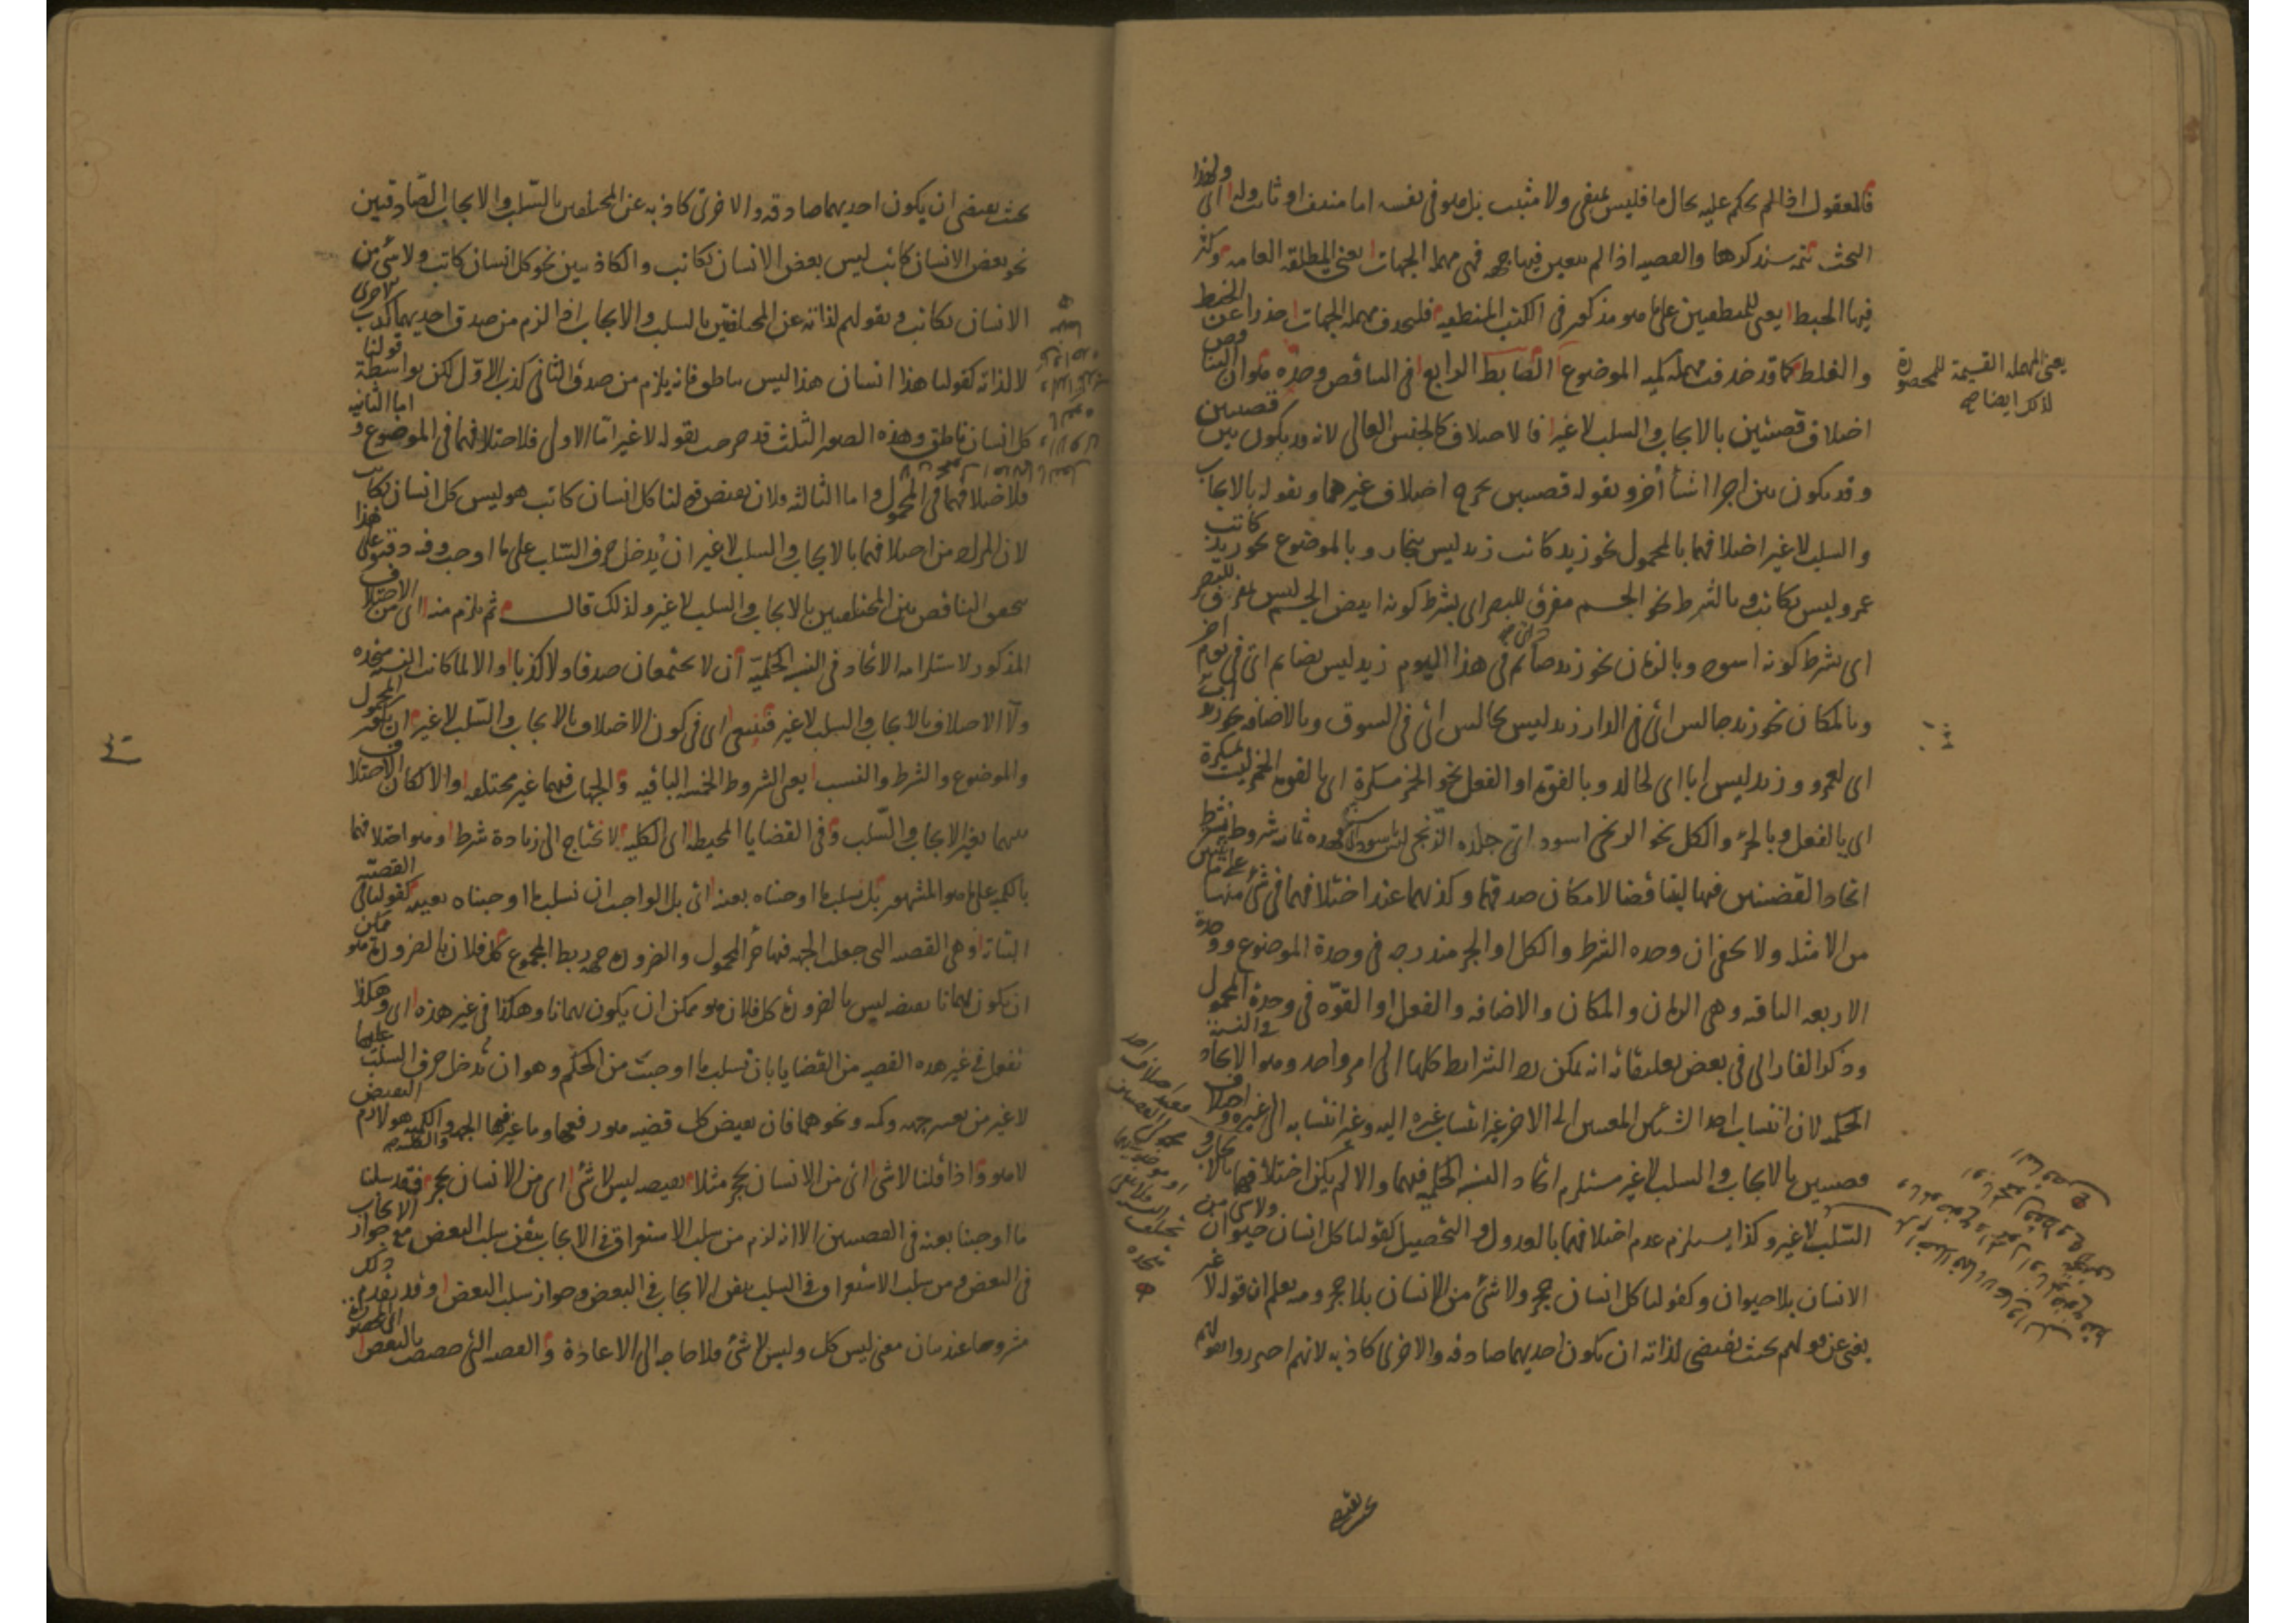 فالمعقول اذا لم يحكم عليه بحال ما فليس بمنفي ولا مثبت بل هو في نفسه اما منتف او ثابت وله اى ولهذا
البحث تتمة سنذكرها والقضية اذا لم يتعين فيها جهة فهى مهملة الجهات يعنى المطلقة العامة وكثر
فيها الخبط يعنى للمنطقيين على ما هو مذكور فى الكتب المنطقية فلتحذف مهملة الجهات حذرا عن الخبط
والغلط كما قد حذفت مهملة كمية الموضوع الضابط الرابع فى التناقض وحده هو ان التناقض
اختلاف قضيتين بالايجاب والسلب لا غير فالاختلاف كالجنس العالى لانه قد يكون بين قضيتين
وقد يكون بين اجزا اشيأ أخر وبقوله قضيتين يخرج اختلاف غيرهما وبقوله بالايجاب
والسلب لا غير اختلافهما بالمحمول نحو زيد كاتب زيد ليس بنجار وبالموضوع نحو زيد كاتب
عمرو ليس بكاتب وبالشرط نحو الجسم مفرق للبصر اى بشرط كونه ابيض الجسم ليس بمفرق للبصر
اى بشرط كونه اسود وبالزمان نحو زيد صائم فى هذا اليوم زيد ليس بصايم اى فى يوم اخر
وبالمكان نحو زيد جالس اى فى الدار زيد ليس بجالس اى فى السوق وبالاضافه نحو زيد اب
اى لعمرو وزيد ليس ابا اى لخالد وبالقوة او الفعل نحو الخمر مسكرة اى بالقوة الخمر ليست بمسكرة
اى بالفعل وبالجزء والكل نحو الزنجى اسود اى جلده الزنجى ليس باسود فهذه ثمانية شروط يشترط
اتحاد القضيتين فيها ليتناقضا لامكان صدقهما وكذبهما عند اختلافهما فى شئ منها على ما تبين
من الامثلة ولا يخفى ان وحدة الشرط والكل او الجزء مندرجه فى وحدة الموضوع ووحدة
الاربعه الباقيه وهى الزمان والمكان والاضافه والفعل او القوه فى وحدة المحمول
وذكر الفارابى فى بعض تعليقاته انه يمكن رد الشرايط كلها الى امر واحد وهو الاتحاد فى النسبة
الحكمية لان انتساب احد الشيئين المعينين الى الاخر غير انتساب غيره اليه وغير انتسابه الى غيره واختلاف
قضيتين بالايجاب والسلب لا غير مستلزم اتحاد النسبة الحكمية فيهما والا لم يكن اختلافهما بالايجاب و
السلب لا غير وكذا يستلزم عدم اختلافهما بالعدول والتحصيل كقولنا كل انسان حيوان ولا شى من
الانسان بلا حيوان وكقولنا كل انسان حجر ولا شئ من الانسان بلا حجر ومنه يعلم ان قوله لا غير
يغنى عن قولهم بحيث يقتضى لذاته ان يكون احديهما صادقه والاخرى كاذبه لانهم احترزوا بقولهم
يعنى المهملة القسيمة للمحصورة
لذلك ايضا
بحيث يقتضى ان يكون احديهما صادقه والاخرى كاذبه عن المختلفين بالسلب والايجاب الصادقتين
نحو بعض الانسان كاتب ليس بعض الانسان بكاتب والكاذبتين نحو كل انسان كاتب ولا شئ من
الانسان بكاتب وبقولهم لذاته عن المختلفتين بالسلب والايجاب اذا لزم من صدق احديهما كذب الاخرى
لا لذاته كقولنا هذا انسان هذا ليس بناطق فانه يلزم من صدق الثانى كذب الاول لكن بواسطة قولنا
كل انسان ناطق وهذه الصور الثلث قد خرجت بقوله لا غير اما الاولى فلاختلافهما فى الموضوع واما الثانية
فلاختلافهما فى المحمول واما الثالثه فلان نقيض قولنا كل انسان كاتب هو ليس كل انسان بكاتب
لان المراد من اختلافهما بالايجاب والسلب لا غير ان يدخل حرف السلب على ما اوجب وفه دقيق فعلى هذا
يتحقق التناقض بين المختلفتين بالايجاب والسلب لا غير ولذلك قال ثم يلزم منه اى من الاختلاف
المذكور لاستلزامه الاتحاد فى النسبة الحكمية أن لا يجتمعان صدقا ولا كذبا والا لما كانت النسبة متحده
ولا الاختلاف بالايجاب والسلب لا غير فينبغى اى فى كون الاختلاف بالايجاب والسلب لا غير ان يكون المحمول
والموضوع والشرط والنسب يعنى الشروط الخمسة الباقيه والجهات فيهما غير مختلفه والا لكان الاختلاف
بينهما بغير الايجاب والسلب وفى القضايا المحيطة اى الكلية لا نحتاج الى زيادة شرط وهو اختلافهما
بالكمية على ما هو المشهور بل نسلب ما اوجبناه بعينه اى بل الواجب ان نسلب ما اوجبناه بعينه كقولنا فى القضية
البتاتة وهى القضيه التى جعلت الجهه فيها جزء المحمول والضرورة جهة ربط المجموع كل فلان بالضرورة هو ممكن
ان يكون بهمانا نقيضه ليس بالضرورة كل فلان هو ممكن ان يكون بهمانا وهكذا فى غير هذه اى وهكذا
نفعل فى غير هذه القضيه من القضايا بان نسلب ما اوجبت من الحكم وهو ان ندخل حرف السلب عليها
لا غير من تغيير جهه وكمية ونحوهما فان نقيض كل قضيه هو رفعها وما غير فيها الجهه والكميه هو لازم النقيض
لا هو واذا قلنا لا شى اى من الانسان بحجر مثلا نقيضه ليس لا شئ اى من الانسان بحجر فقد سلبنا
ما اوجبنا بعينه فى القضيتين الا انه لزم من سلب الاستغراق فى الايجاب تيقن سلب البعض مع جواز الايجاب
فى البعض ومن سلب الاستغراق فى السلب تيقن الايجاب فى البعض وجواز سلب البعض وقد تقدم ذلك
مشروحا عند بيان معنى ليس كل وليس لا شئ فلا حاجة الى الاعادة والقضيه التى خصصت بالبعض